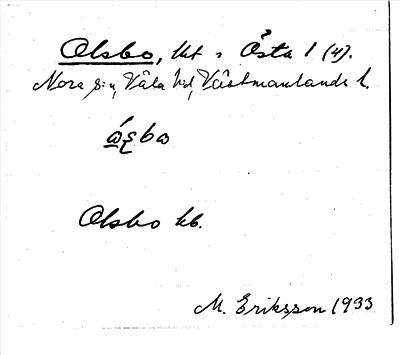 Olsbo, lht s Östa 1 (4).
Nora s:n, Våla hd, Västmanlands l.
ó̲s̨bω
Olsbo kb.
M. Eriksson 1933